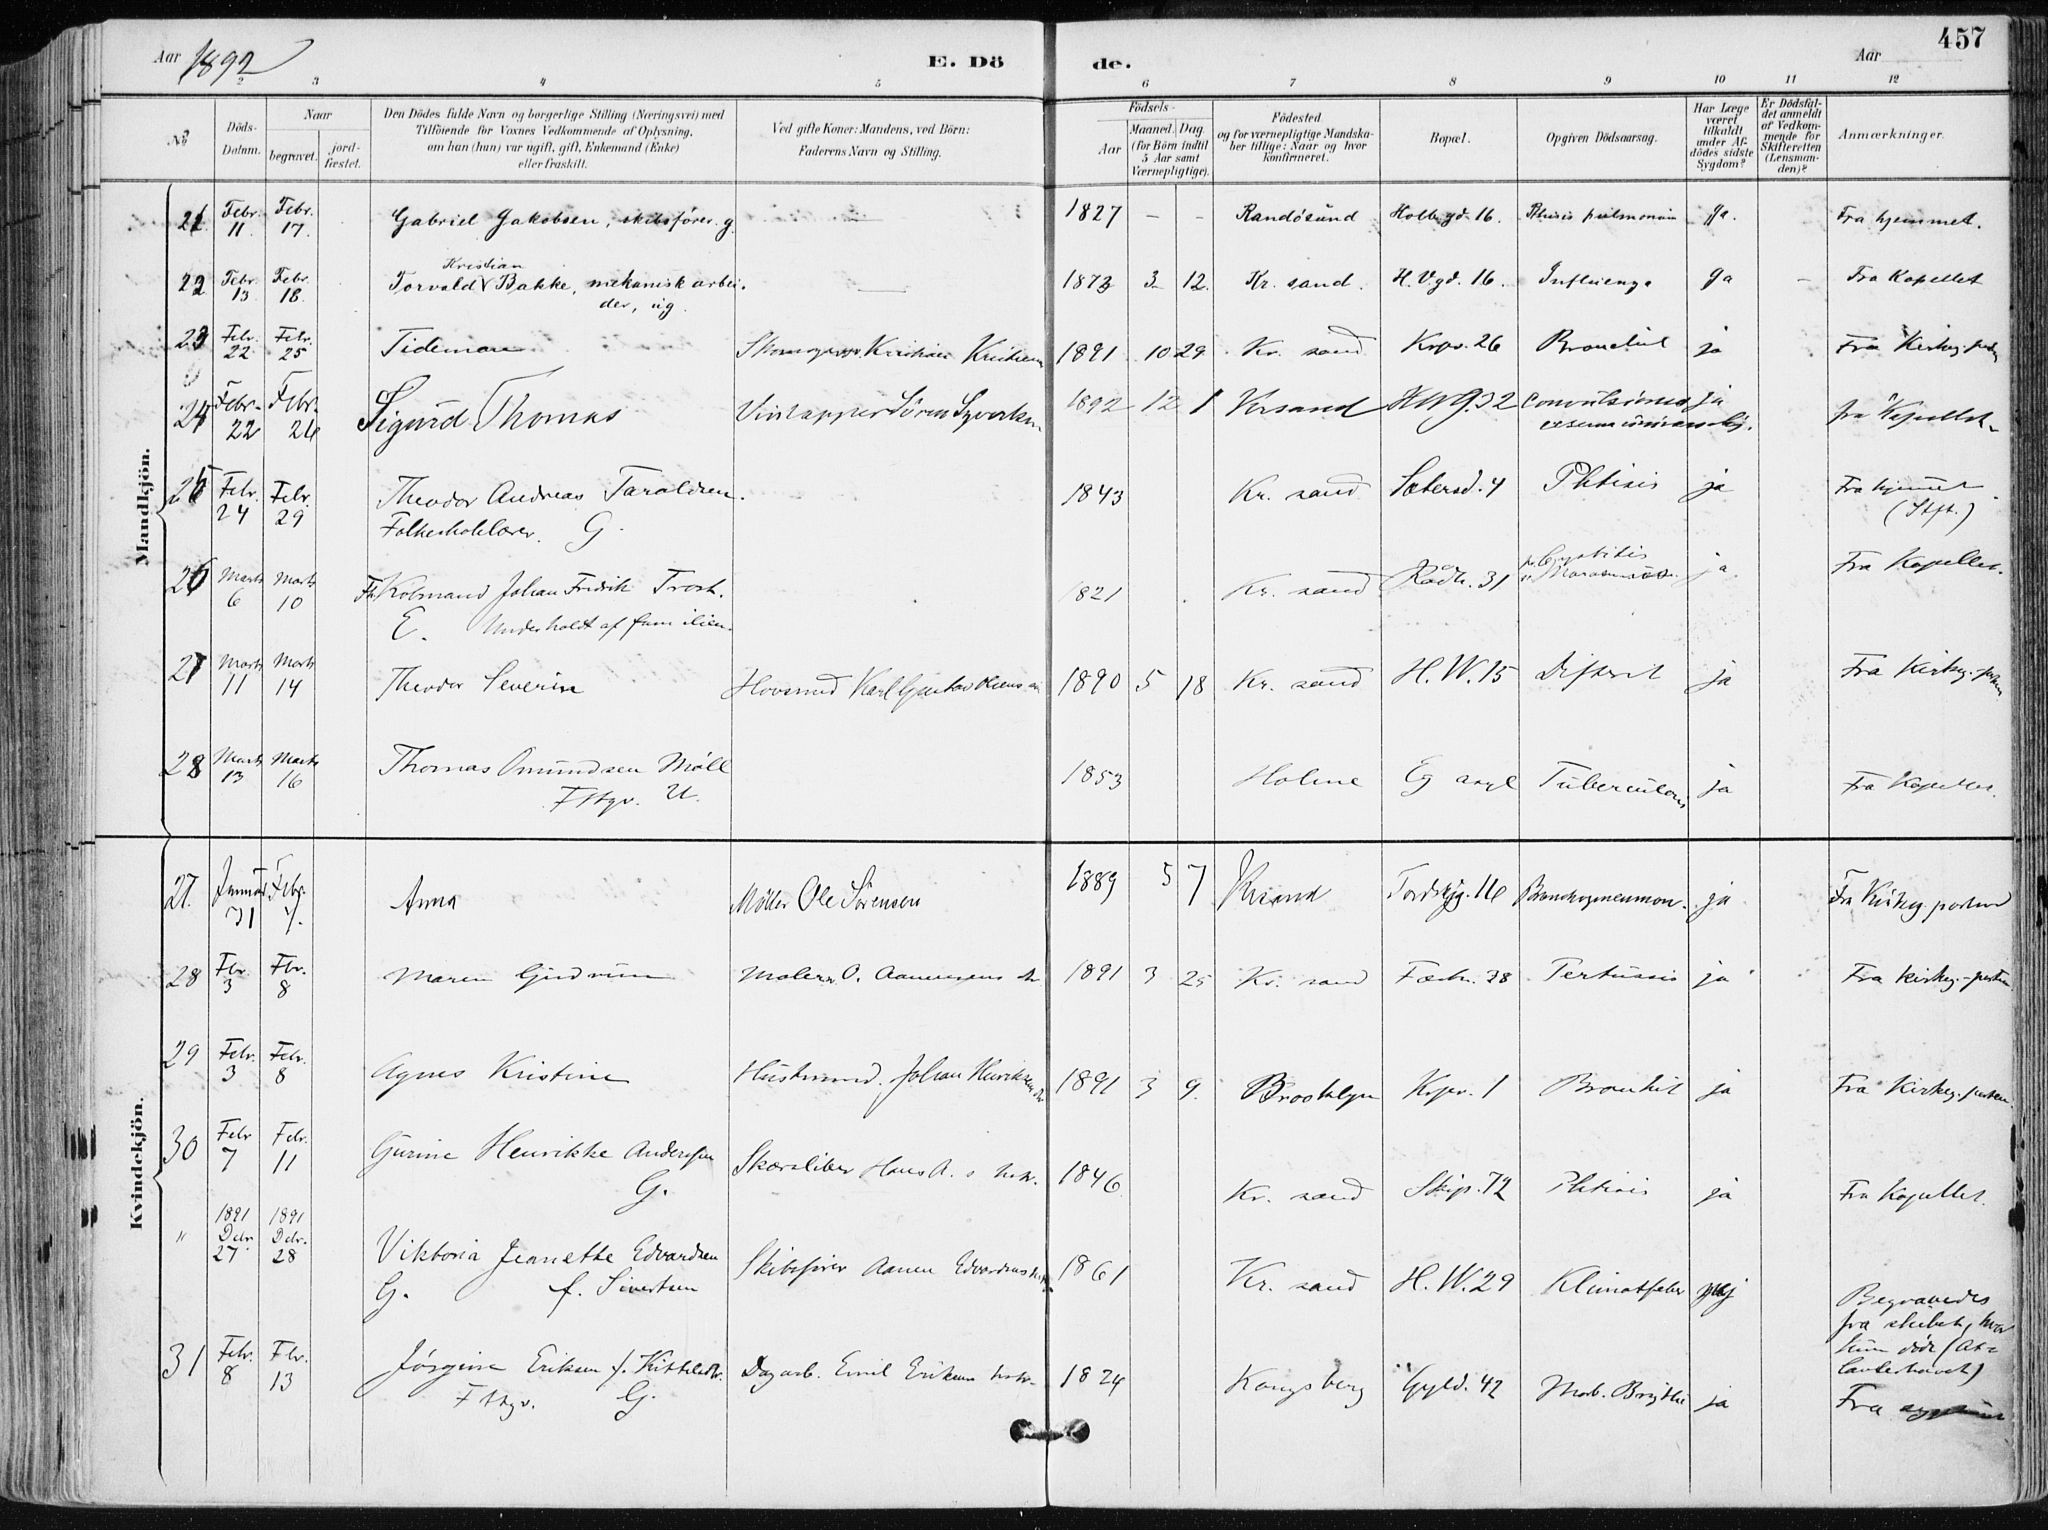 Aar 1892
E. Dö
de.
Aar
457
2 3 4 5 6 7 8 9 10 11 12
№
Döds-Datum.
Naar
begravet.
jord-fæstet.
Den Dödes fulde Navn og borgerlige Stilling (Næringsvei) med
Tilföiende for Voxnes Vedkommende af Oplysning,
om han (hun) var ugift, gift, Enkemand (Enke)
eller fraskilt.
Ved gifte Koner: Mandens, ved Börn:
Faderens Navn og Stilling.
Födsels-
Aar
Maaned. Dag
(for Börn indtil
5 Aar samt
Værnepligtige).
Födested
og for værnepligtige Mandska-
ber tillige: Naar og hvor
konfirmeret.
Bopæl.
Opgiven Dödsaarsag.
Har Læge
været
tilkaldt
under Af-
dödes sidste
Sygdom?
Er Dödsfal-
det anmeldt
af Vedkom-
mende for
Skifteretten
(Lensman-
den)?
Anmærkninger.
Mandkjön.
21 Febr. 11 Febr. 17. Gabriel Jakobsen, skibsfører. g. — 1827 – – Randösund Holb.gd. 16. Phtisis pulmonum Ja. Fra hjemmet.
22 Febr. 13 Febr. 18. Torvald Kristian Bakke, mekanisk arbei-
der, ug. — 1873 3 12. Kr. sand. H.V.gd. 16. Influenza Ja – Fra Kapellet
23 Febr. 22 Febr. 25 Tideman Kristian 1891 10 29 Kr. sand Krps. 26 Bronchit ja Fra Kirkeg. porten
24 Febr. 22 Febr. 26 Sigurd Thomas Vintapper Sören 1892 12 1 Krsand 32 Convulsiones ja fra Kapellet
25 Febr. 24 Febr. 29 Theodor Andreas Taraldsen.
Folkeskolelærer. G. 1843 Kr. sand Sætersd. 4 Phtisis ja Fra hjemmet
(Stft.)
26 Marts 6 Marts 10 Kobmand Johan Fredrik Trost.
E. Underholdt af familien. 1821 Kr. sand Rådh. 31 Cystitis
ja. Fra Kapellet.
27 Marts 11 Marts 14 Theodor Severin Karl Gustav 1890 5 18 Kr. sand H. W. 15 Difterit ja Fra Kirkeg. porten
28 Marts 13 Marts 16 Thomas Omundsen Möll
U. 1853 Holme Eg asyl Tuberculosis ja Fra Kapellet.
Kvindekjön.
27. Januar 31 Febr. 7. Anna Möller Ole Sörensen 1889 5 7 Krsand 16 ja Fra Kirkeg. porten
28 Fbr. 3 Fbr. 8 Maren Gudrun Maler O. Aanensens dr 1891 3 25 Kr. sand Fæstn. 38 Pertussis ja Fra Kirkeg.-porten
29 Febr. 3 Febr. 8 Agnes Kristine Husmand. Johan Henriksens dr 1891 3 9. Brooklyn Krpr. 1 Bronkit ja Fra Kirkeg. porten.
30 Febr 7 Febr. 11 Gurine Henrikke Andersen
G. Skærsliber Hans A. s hstr. 1846 Kr. sand Skip. 72 Phtisis ja Fra Kapellet.
" 1891 Dcbr 27 1891 Dcbr. 28 Viktoria Jeanette Edvardsen
G. f. Sivertsen Skibsfører Aanen Edvardsens 1861 Kr. sand H. W. 29 Klimatfeber nej Begravedes
fra skibet, hvor
hun døde (At-
lanterhavet)
31 Febr. 8 Fbr. 13 Jörgine Eriksen f.
G. Dagarb. Emil Eriksens hstr. 1824 Kongsberg Gyld. 42 Morb. Brigthi ja Fra